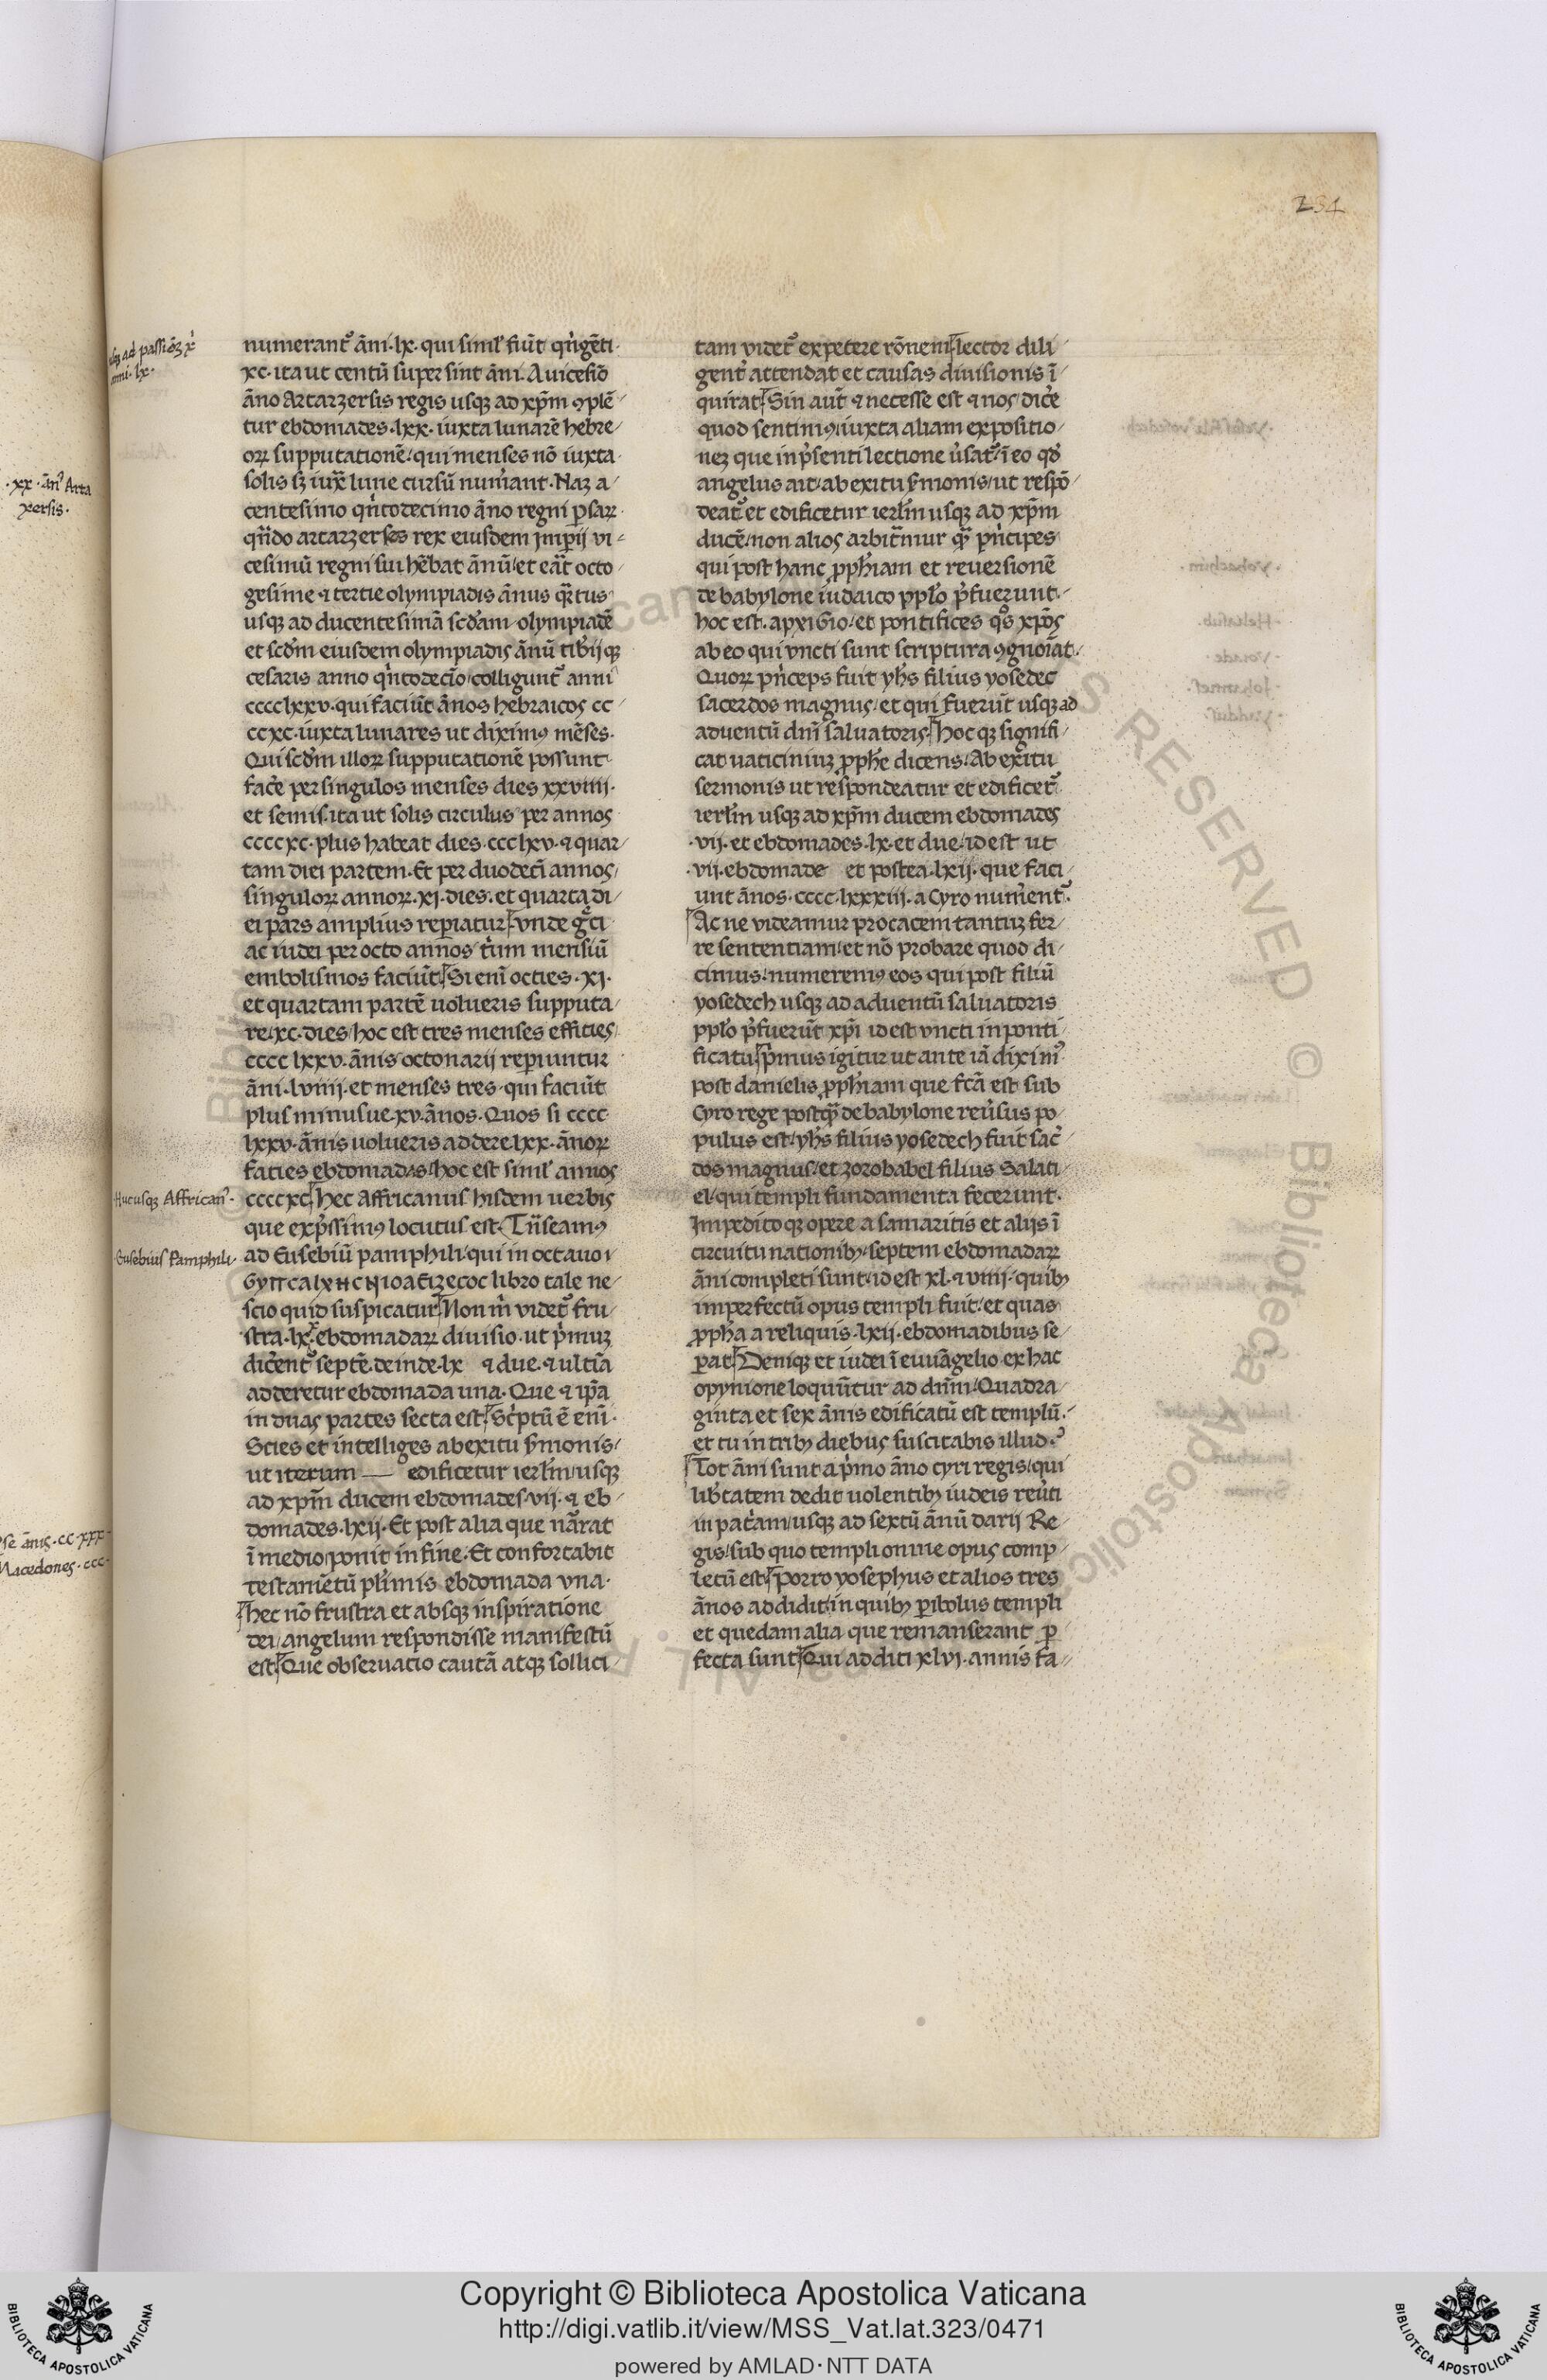 234
usq ad passiōȝ x̓
anni · lx ·
· xx · ān̓ Arta
xersis ·
se ānis · cc · xxx ·
Macedones · ccc ·
numerant᷒ āni · lx · qui simĺ fiūt qn̓gēti ·
xc · ita ut centū super sint āni. A uicesiō
āno artarzersis regis usqȝ ad xp̄m ꝯplē
tur ebdomades · lxx · iuxta lunarē hebre
oꝝ supputationē / qui menses nō iuxta
solis sȝ iux̄ lune cursū num̓ant · Naȝ a
centesimo qn̓todecimo āno regni p̱saꝝ
qn̄do artarzerses rex eiusdem imp̱ij vi
cesimū regni sui hēbat ānū / et eāt octo
gesime ⁊ tertie olympiadis ānus qr̄tus
usqȝ ad ducentesimā scd̓am olympiadē
et scd̓m eiusdem olympiadis ānū tib̓ijqȝ
cesaris anno qn̓todecīo / colligunt᷒ anni
cccclxxv · qui faciūt ānos hebraicos cc
ccxc · iuxta lunares ut diximꝰ mēses ·
Qui scd̓m illoꝝ supputationē possunt
fac̓e per singulos menses dies xxviiii ·
et semis · ita ut solis circulus per annos
ccccxc · plus habeat dies · ccclxv · ⁊ quar
tam diei partem · Et per duodecī annos
singuloꝝ annoꝝ · xi · dies · et quarta di
ei pars amplius rep̱iatur / vnde gc̄i
ac iudei per octo annos t̓um mensiū
embolismos faciūt Si enī octies · xi ·
et quartam partē uolueris supputa
re / xc · dies / hoc est tres menses efficies
cccc lxxv · ānis octonarij rep̱iuntur
āni · lviiij · et menses tres · qui faciūt
plus minusue · xv · ānos · Quos si cccc
lxxv · ānis uolueris addere lxx · ānoꝝ
facies ebdomadas / hoc est simĺ annos
Hucusqȝ Affrican᷒ ·
ccccxc hec Affricanus hisdem uerbis
que exp̓ssimꝰ locutus est · Tn̄seamꝰ
· Eusebius Pamphili ·
ad Eusebiū pamphili / qui in octauo ı
GyπcaıxнcнıoaƐızecoc libro tale ne
scio quid suspicatur Non m̓ videt᷒ fru
stra · lxx ebdomadaꝝ diuisio · ut p̓muȝ
dic̓ent᷒ septē · deinde · lx ⁊ due · ⁊ ultīa
adderetur ebdomada una · Que ⁊ ip̄a
in duas partes secta est Sc̓ptū ē enī ·
Scies et intelliges ab exitu s̓monis /
ut iterum — edificetur ierl̓m / usqȝ
ad xpm̄ ducem ebdomades · vij · ⁊ eb
domades · lxij · Et post alia que nār̄at
ī medio / ponit in fine · Et confortabit
testamētū pl̓imis ebdomada vna ·
hec nō frustra et absqȝ inspiratione
dei / angelum respondisse manifestū
est Que obseruatio cautā atqȝ sollici
tam videt᷒ expetere rōnem lector dili
gent̓ attendat et causas diuisionis ī
quirat Sin aut̄ ⁊ necesse est ⁊ nos dic̓e
quod sentimꝰ / iuxta aliam expositio
neȝ que in p̓senti lectione u̓sat᷒ / ī eo qd̓
angelus ait / ab exitu s̓monis / ut respō
deat᷒ et edificetur ierl̓m usqȝ ad xp̄m
ducē / non alios arbit̄mur qꝫ̄ pn̓cipes
qui post hanc ꝓph̓iam et reuersionē
de babylone iudaico ppl̓o p̓fuerunt ·
hoc est · apxiGio / et pontifices qs̓ xp̄os
ab eo qui vncti sunt scriptura ꝯgnoīat ·
Quoꝝ pn̓ceps fuit yh̓s filius yosedec
sacerdos magnus / et qui fuerūt usqȝ ad
aduentū dn̄i saluatoris · hoc qȝ signifi
cat uaticiniuȝ ꝓphe̓ dicens / Ab exitu
sermonis ut respondeatur et edificet᷒
ierl̓m usqȝ ad xp̄m ducem ebdomades
· vij · et ebdomades · lx · et due / id est ut
· vij · ebdomade et postea · lxij · que faci
unt ānos · cccc · lxxxiii · a Cyro num̓ent᷒ ·
Ac ne videamur procacem tantuȝ fer
re sententiam / et nō probare quod di
cimus / numeremꝰ eos qui post filiū
yosedech usqȝ ad aduentū saluatoris
ppl̓o p̓fuerūt xp̄i id est vncti in ponti
ficatu p̓mus igitur ut ante iā diximꝰ
post danielis ꝓph̓iam que fc̄a est sub
Cyro rege postqꝫ̄ de babylone reu̓sus po
pulus est / yh̓s filius yosedech fuit sac̓
dos magnus / et zorobabel filius Salati
el / qui templi fundamenta fecerunt ·
Impedito qȝ opere a samaritis et alijs ī
circuitu nationibꝰ / septem ebdomadaꝝ
āni completi sunt / id est xl · ⁊ viiij · quibꝰ
imperfectū opus templi fuit / et quas
ꝓpha̓ a reliquis · lxij · ebdomadibus se
p̱at Deniqȝ et iudei ī euuāgelio ex hac
opynione loquūtur ad dn̄m / Quadra
ginta et sex ānis edificatū est templū ·
et tu in tribꝰ diebus suscitabis illud ·
Tot āni sunt a p̓mo āno cyri regis / qui
lib̓tatem dedit uolentibꝰ iudeis reu̓ti
in pat̓am / usqȝ ad sextū ānū darij Re
gis / sub quo templi omne opus comp
letū est porro yosephus et alios tres
ānos addidit / in quibꝰ p̱ibolus templi
et quedam alia que remanserant p̱
fecta sunt Qui additi xlvi · annis fa
Copyright © Biblioteca Apostolica Vaticana
http://digi.vatlib.it/view/MSS_Vat.lat.323/0471
powered by AMLAD·NTT DATA
BIBLIOTECA APOSTOLICA VATICANA
BIBLIOTECA APOSTOLICA VATICANA